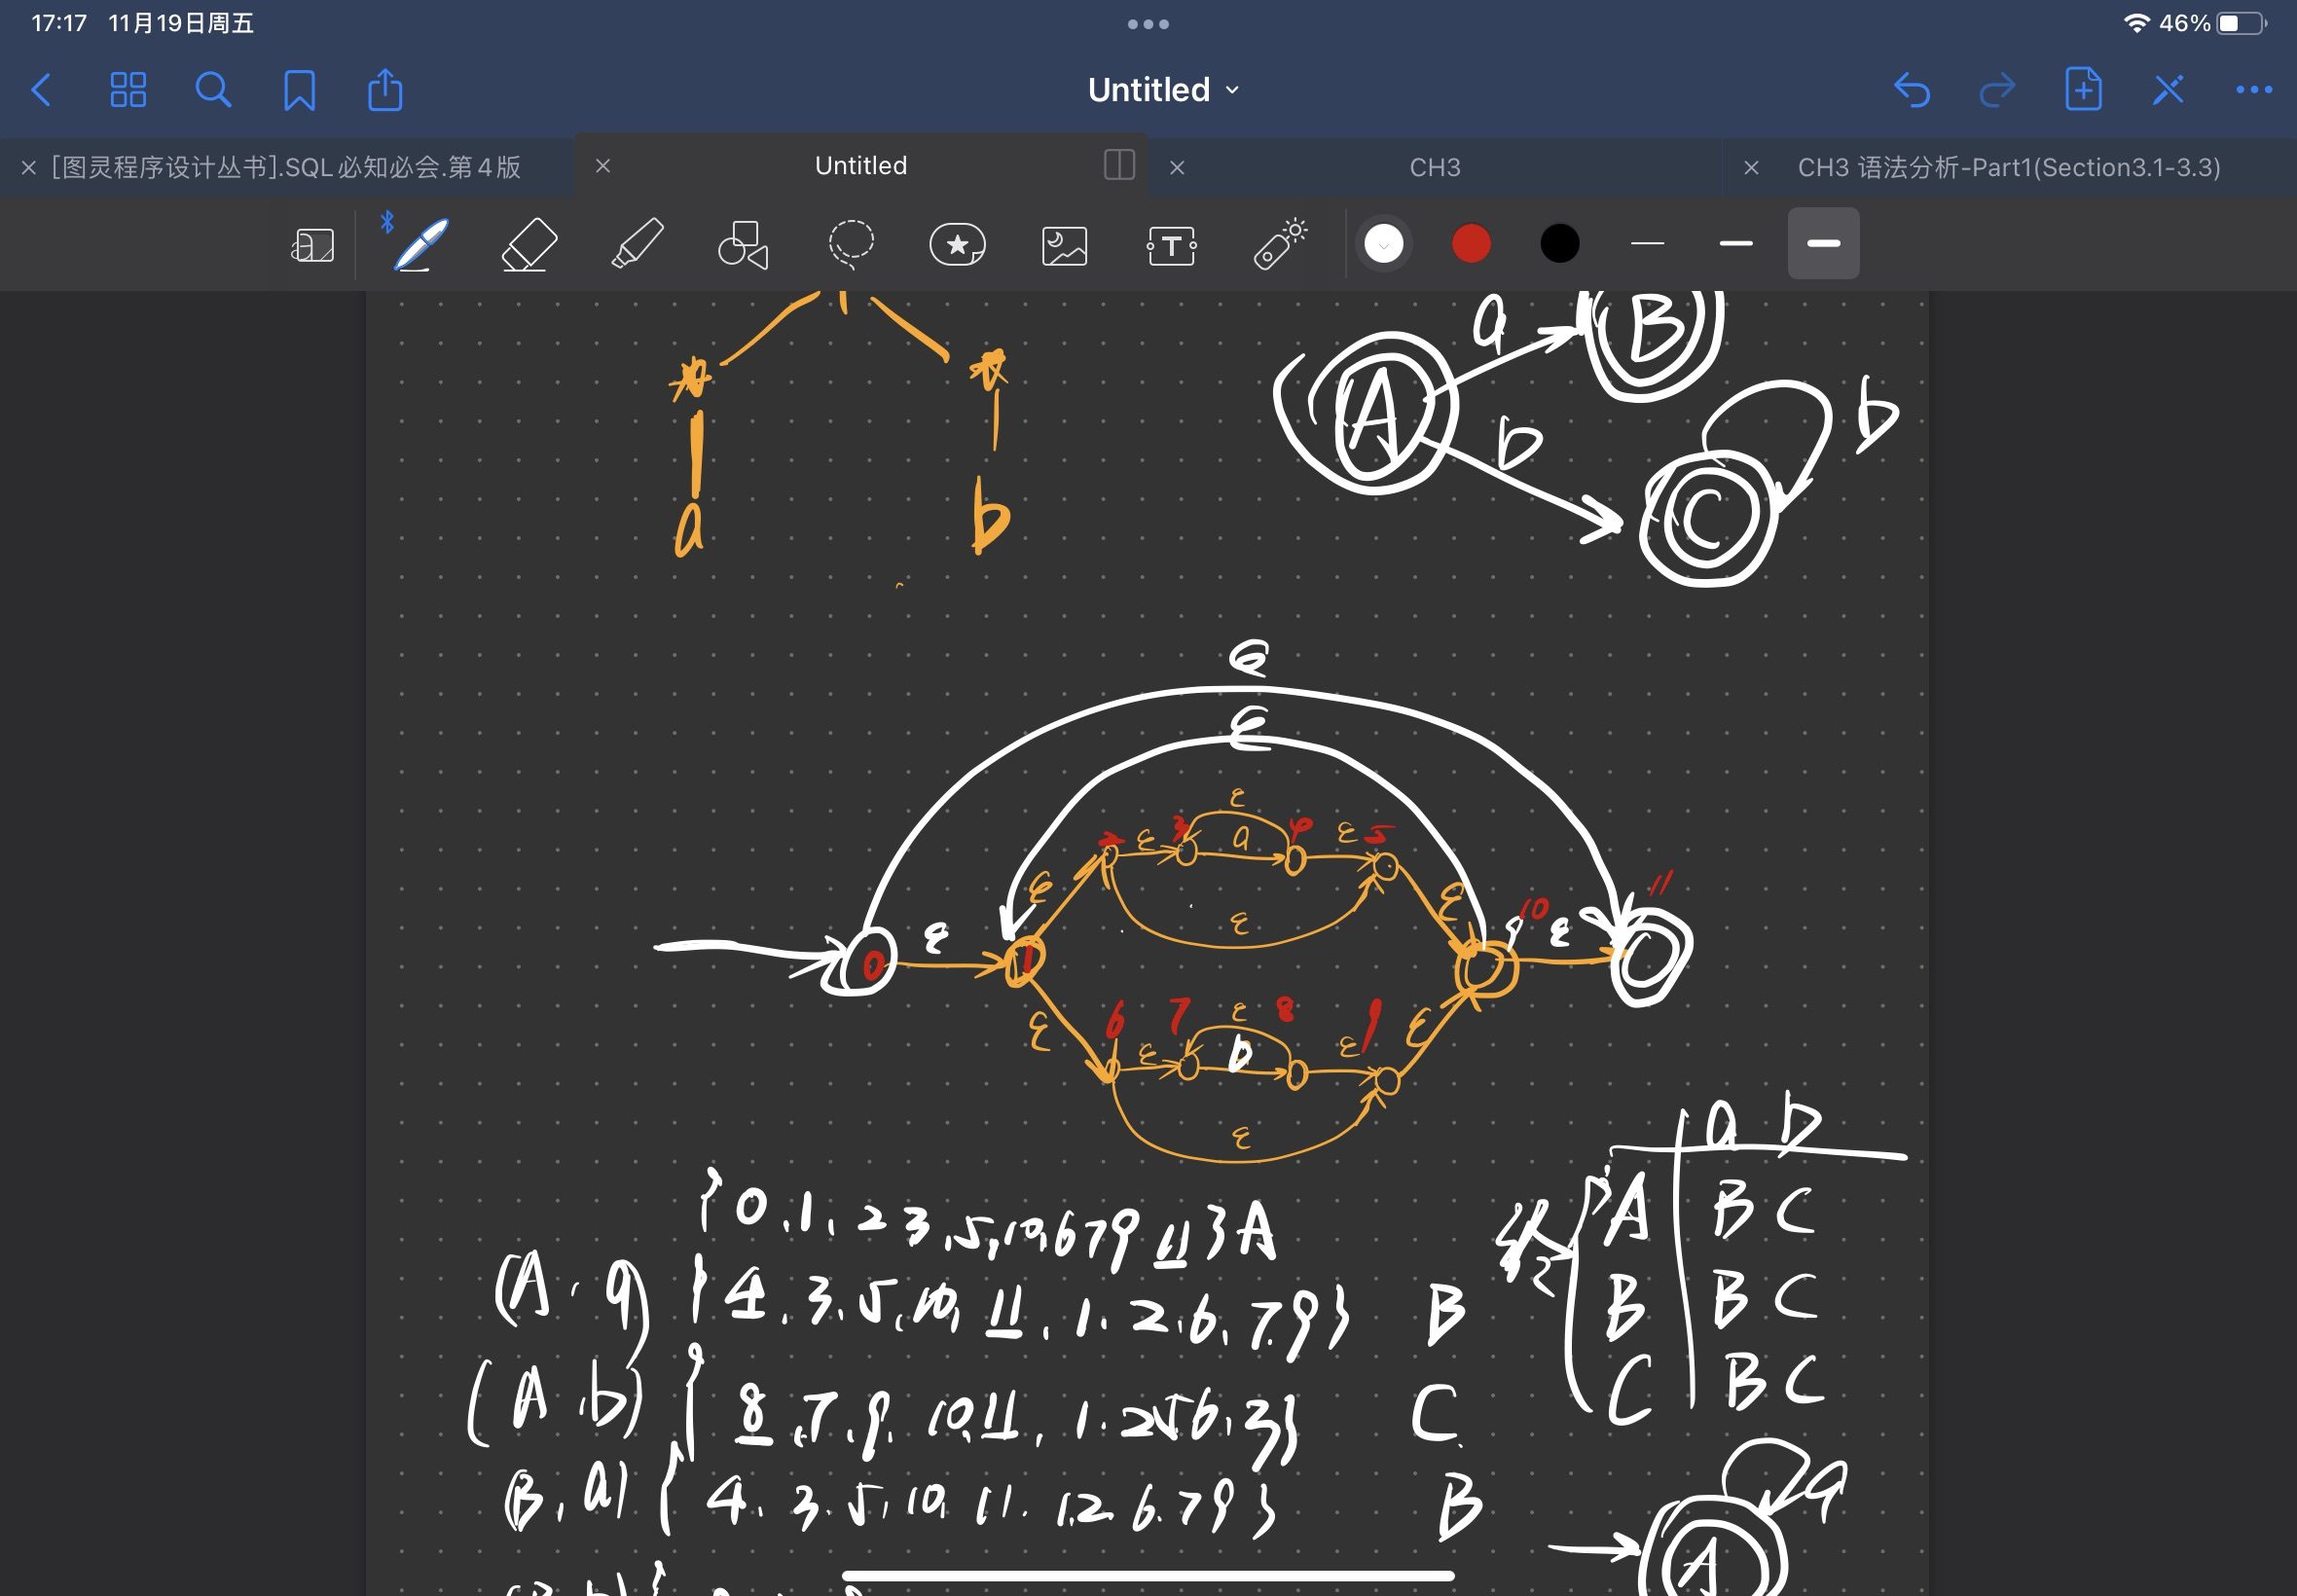 17:17 11月19日周五 46%
Untitled
[图灵程序设计丛书].SQL必知必会.第4版 Untitled CH3 CH3 语法分析-Part1(Section3.1-3.3)
a B
A
b b
C
a b
ε
ε
ε
2 ε 3 a 4 ε 5
ε ε
ε 10 11
0 ε 1 ε
6 7 ε 8 9
ε ε b ε ε
ε
a b
{0.1.23.5.10.6791 11} A
A B C
(A.a) {4.3.5.10.11.1.2.6.7.9} B
B B C
(A.b) {8.7.9.10.11.1.2.5.6.3} C
C B C
(B.a) {4.3.5.10.11.1.2.6.7.9} B
a
A